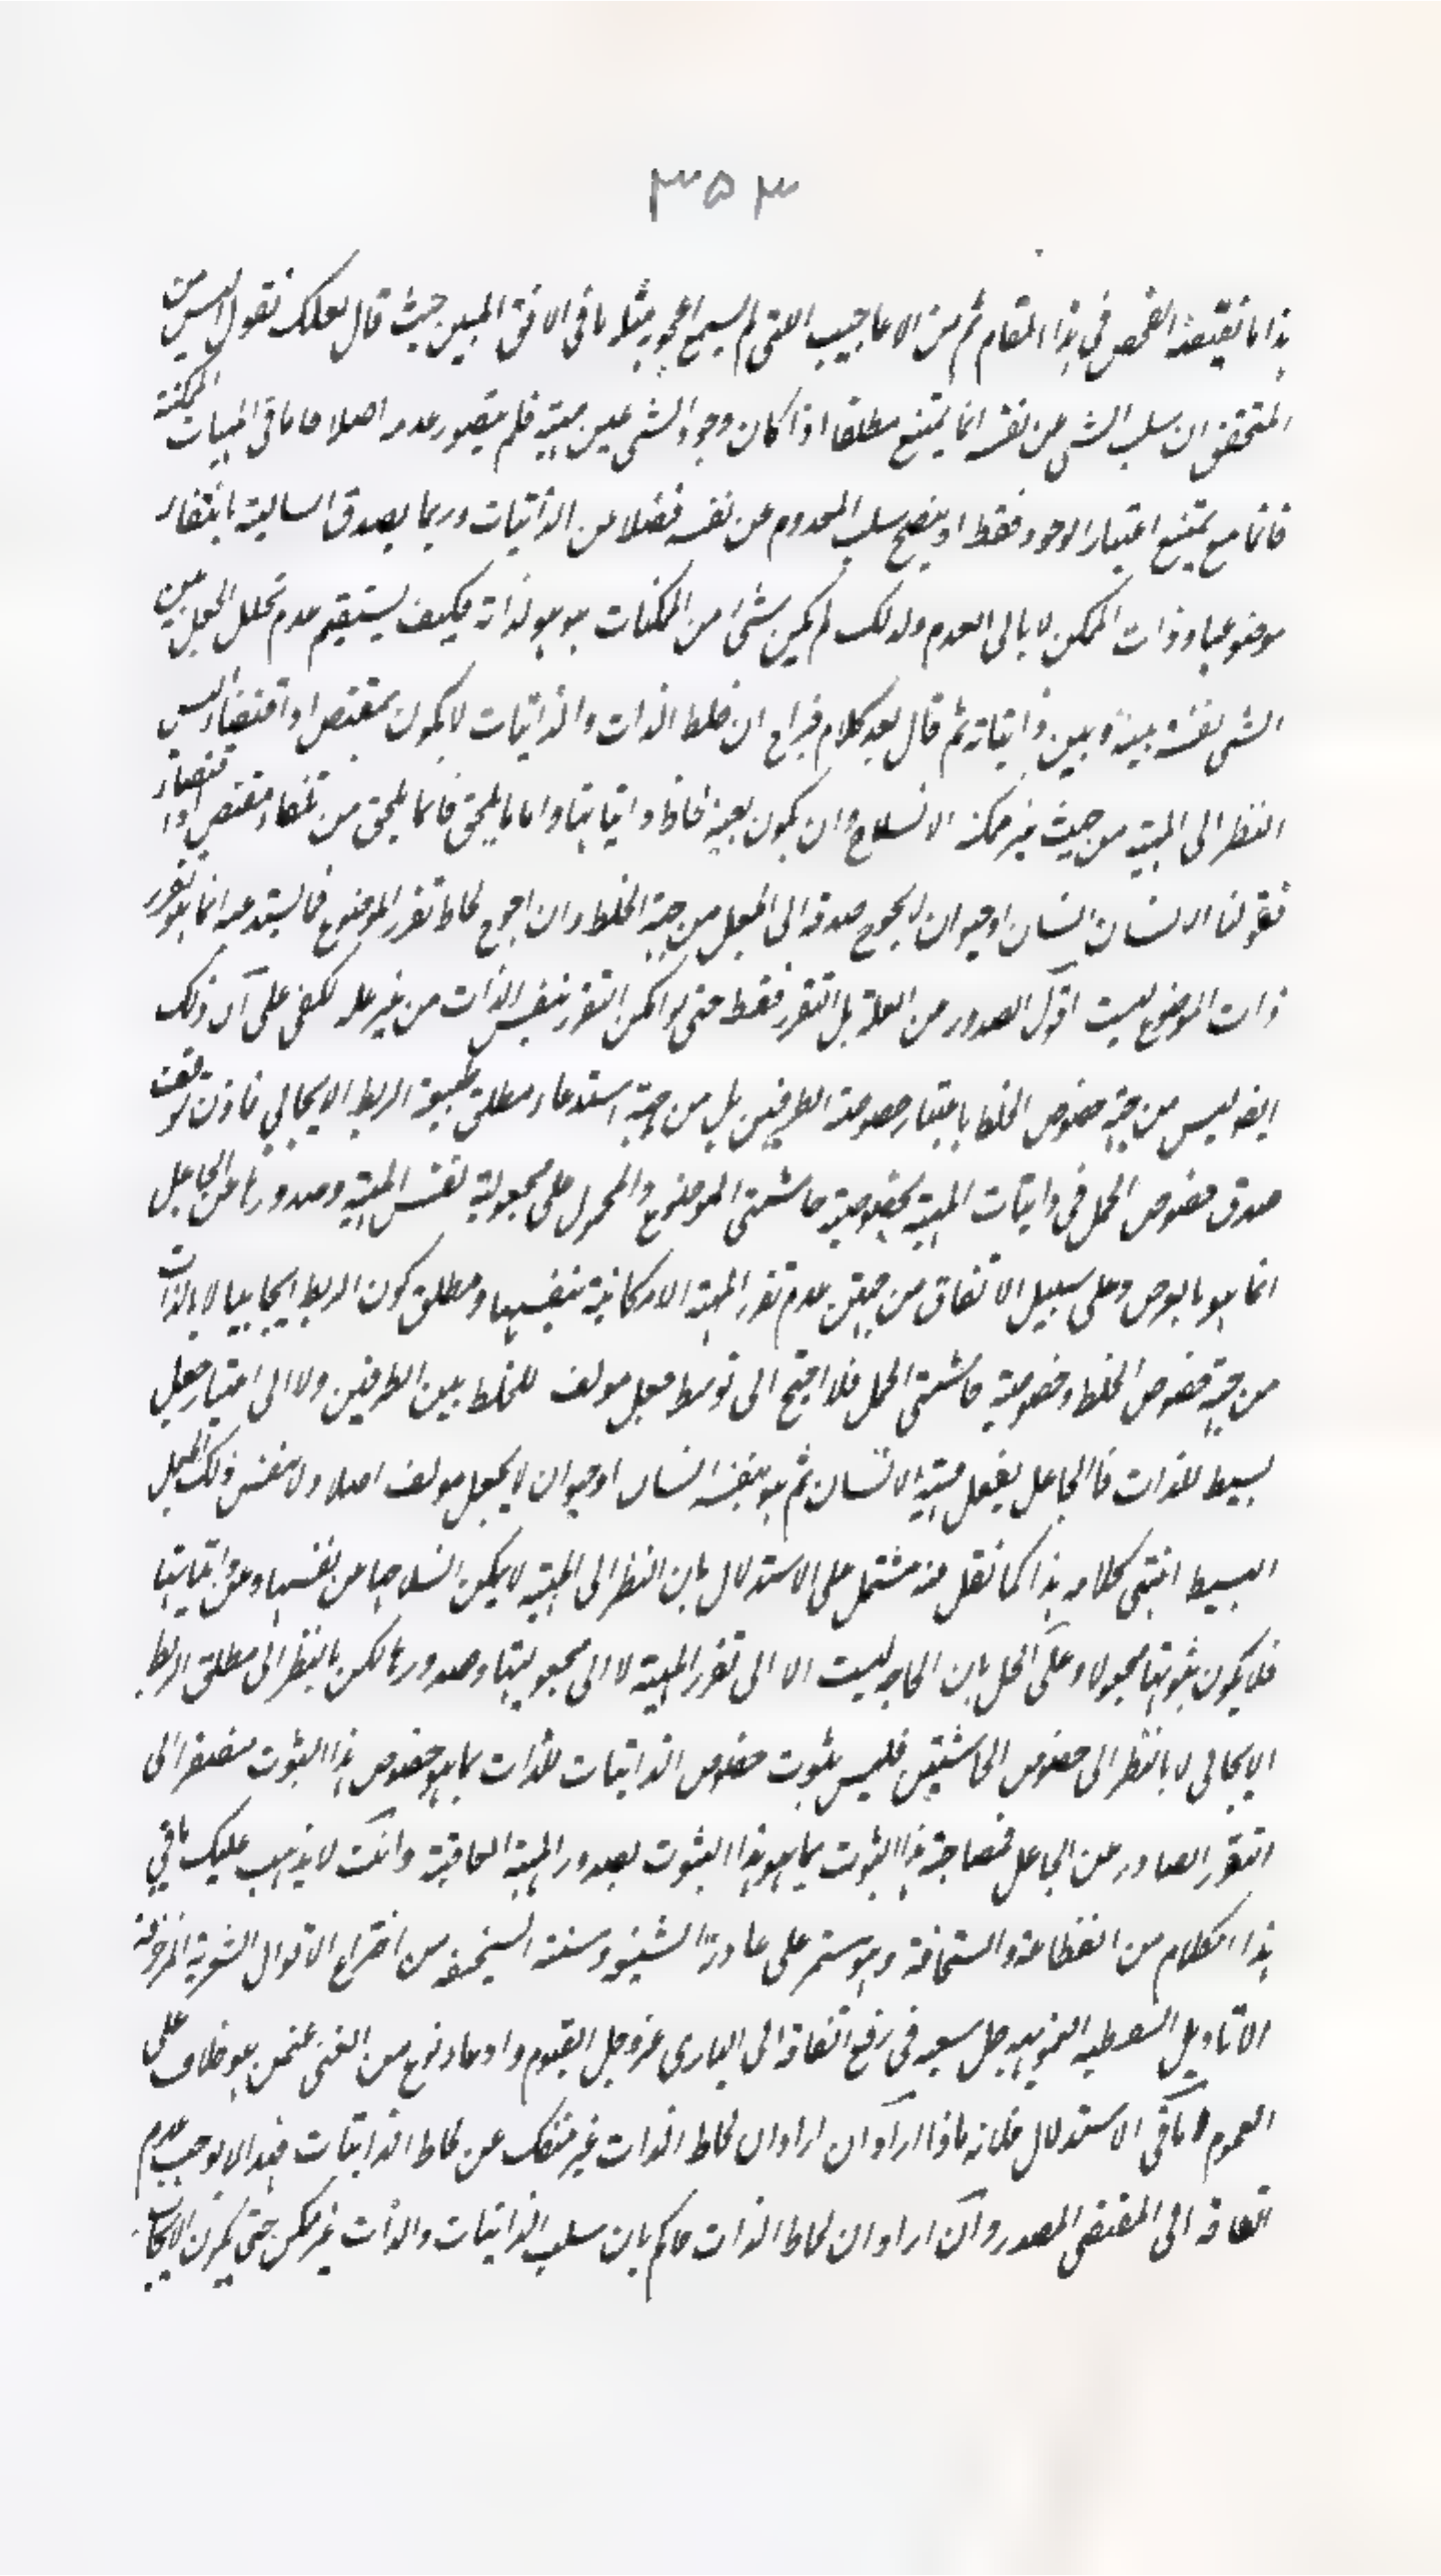 ٣٥٣
هذا ما يقتضيه الفحص في هذا المقام ثم من الاعاجيب التي لم يسمع اعجوبة مثلها ما في الافق المبين حيث قال لعلك تقول اليس من
المتحقق ان سلب الشي عن نفسه انما يمتنع مطلقا اذا كان وجود الشي عين مهيته فلم يتصور عدمه اصلا فاما في المهيات الممكنة
فانما يمتنع مع اعتبار الوجود فقط او يصح سلب المعدوم عن نفسه فضلا عن الذاتيات وربما يصدق السالبة بانتفاء
موضوعها وذات الممكن لا يابى العدم ولذلك لم يكن شئ من الممكنات هو هو لذاته فكيف يستقيم عدم تخلل الجعل بين
الشي نفسه وبين ذاتياته ثم قال بعد كلام فراع ان خلط الذات والذاتيات لا يكون بمقتض او اقتضاء اليس
النظر الى المهية من حيث هي غير ممكنة الانسلاخ ان يكون بعينه لحاظ ذاتياتها واما ما يلحق فانما يلحق من تلقاء مقتض او اقتضاء
فقولنا الانسان انسان او حيوان لا يحوج صدقه الى الجعل من جهة الخلط وان احوج لحاظ تقرر الموضوع فما يستدعيه انما هو تقرر
ذات الموضوع ليست اقول الصدور من العلة بل التقرر فقط حتى لو امكن التقرر بنفس الذات من غير علة لكفى على ان ذلك
ايضا ليس من جهة خصوص الخلط باعتبار خصوصية الطرفين بل من جهة استدعاء مطلق طبيعة الربط الايجابي فاذن توقف
صدق خصوص الحمل في ذاتيات المهية بخصوصية حاشيتي الموضوع والمحمول على مجعولية نفس المهية وصدورها عن الجاعل
انما هو بالعرض وعلى سبيل الاتفاق من جهتي عدم تقرر المهية الامكانية بنفسها ومطلق كون الربط ايجابيا لا بالذات
من جهة خصوص الخلط وخصوصية حاشيتي الحمل فلا احتيج الى توسط جعل مولف للخلط بين الطرفين ولا الى اعتبار جعل
بسيط للذات فالجاعل يفعل مهية الانسان ثم هو بنفسه انسان او حيوان لا بجعل مولف اصلا ولا بنفس ذلك الجعل
البسيط انتهى كلامه هذا كما نقل عنه مشتمل على الاستدلال بان النظر الى المهية لا يمكن انسلاخها من نفسها وعن ذاتياتها
فلا يكون ثبوتها مجعولا وعلى الحل بان الحاجة ليست الا الى تقرر المهية لا الى مجعوليتها وصدورها لكن بالنظر الى مطلق الربط
الايجابي لا بالنظر الى خصوص الحاشيتين فليس ثبوت خصوص الذاتيات للذات بما هو خصوص هذا الثبوت مفتقرا الى
التقرر الصادر عن الجاعل فمصاحبة هذا الثبوت بما هو هذا الثبوت بصدور المهية اتفاقية وانت لا يذهب عليك ما في
هذا الكلام من الفظاعة والسخافة وهو مستمر على عادته الشنيعة وسنته السخيفة من اختراع الاقوال الشعرية المزخرفة
الاقاويل السفسطية المموهة جل سعيه في رفع الفاقة الى الباري عز وجل القيوم وادعاء نوع من الغنى عمن هو خلاق على
العموم اما في الاستدلال فلانه ماذا اراد ان اراد ان لحاظ الذات غير منفك عن لحاظ الذاتيات فهذا لا يوجب عدم
الفاقة الى المقتضى المصدر وان اراد ان لحاظ الذات حاكم بان سلب الذاتيات والذات غير ممكن حتى يكون الايجاب